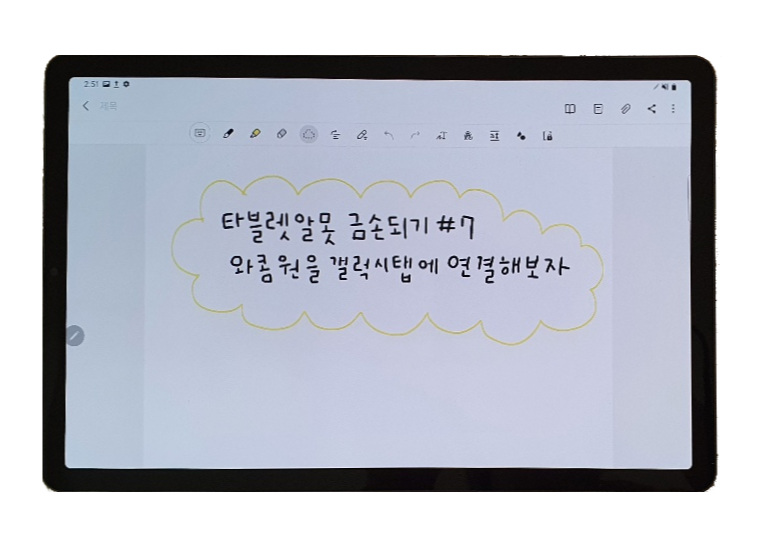 2:51
제목
타블렛알못 금손되기 #7
와콤원을 갤럭시탭에 연결해보자